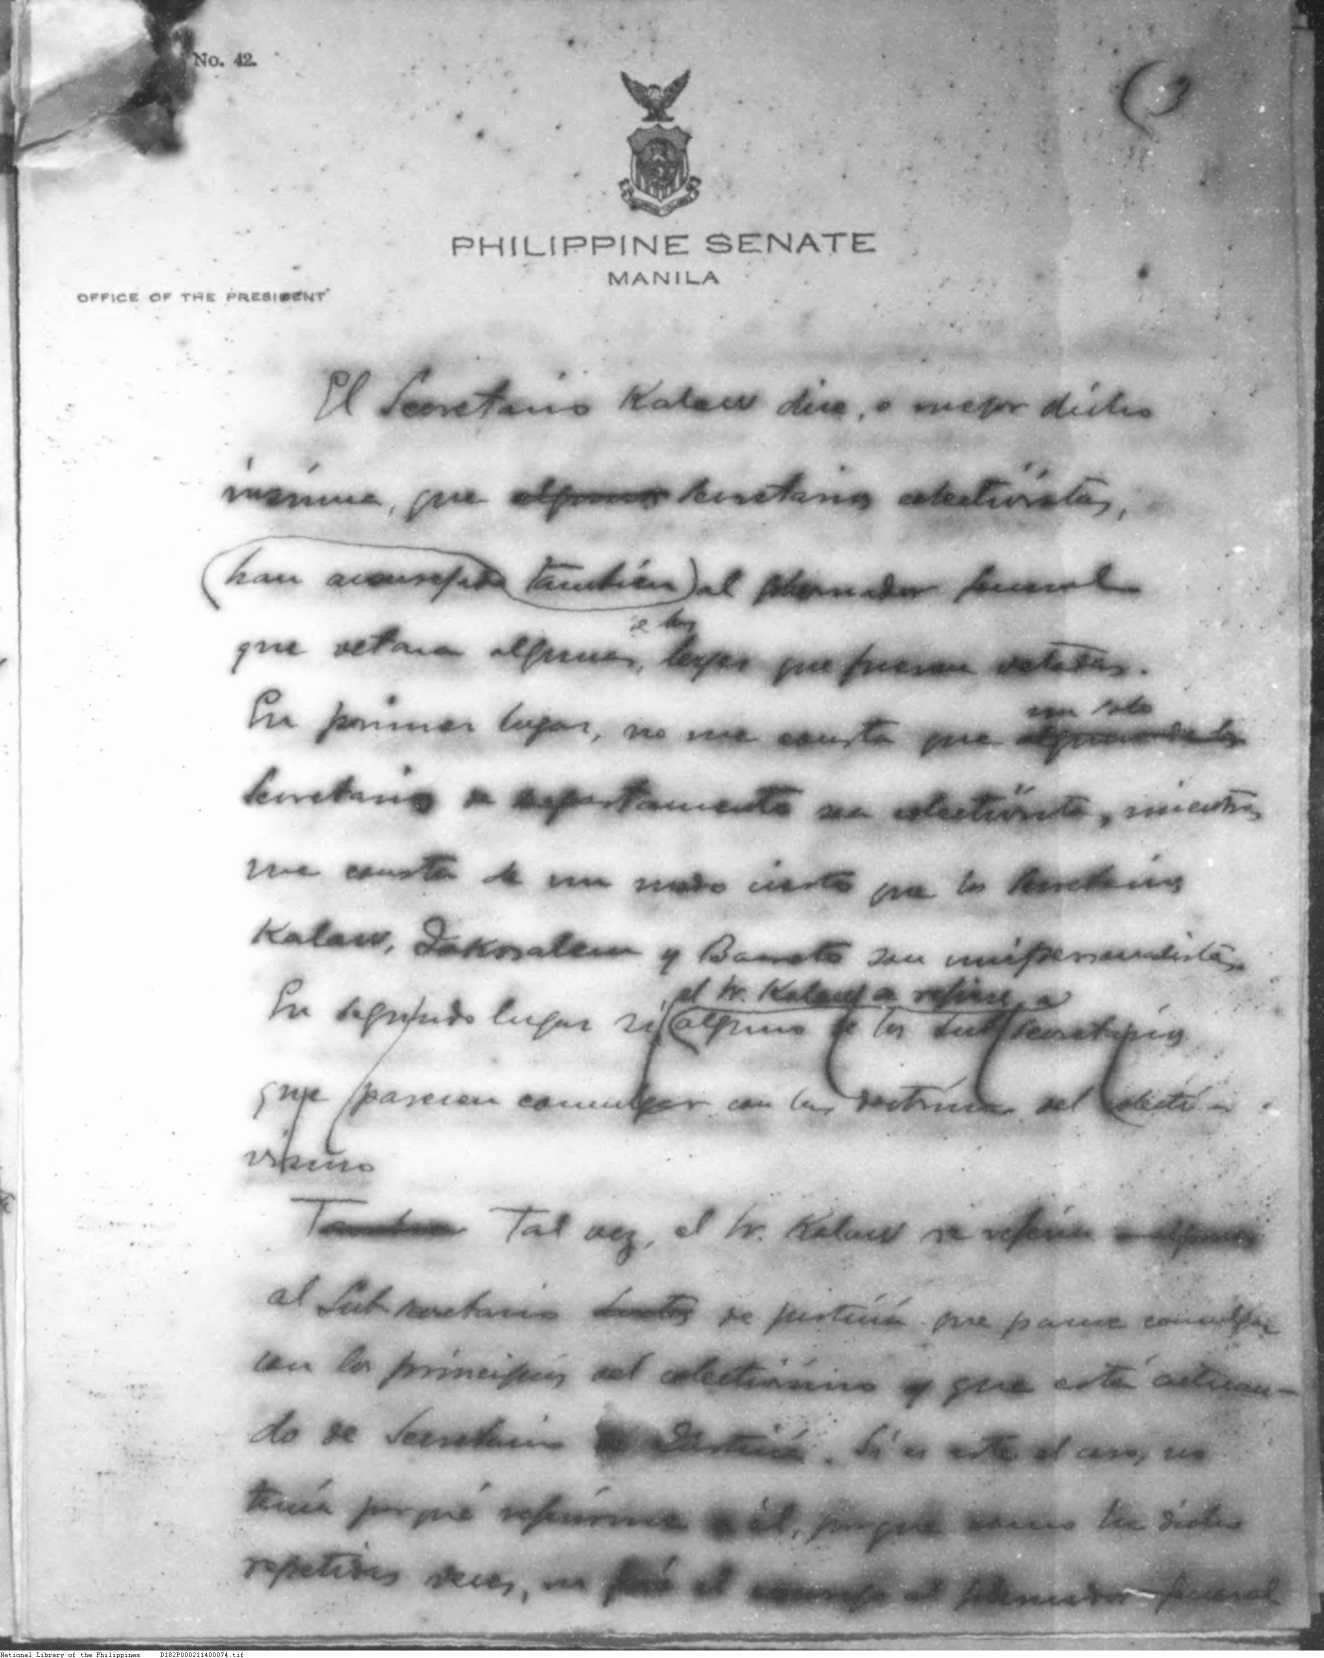 No. 42.
PHILIPPINE SENATE
MANILA
OFFICE OF THE PRESIDENT
El Secretario Kalaw dice, o mejor dicho
insinúa, que algunos secretarios colectivistas,
han aconsejado también al Gobernador General
que vetara algunas de las leyes que fueron vetadas.
En primer lugar, no me consta que un solo
Secretario de departamento sea colectivista, mientras
me consta de un modo cierto que los secretarios
Kalaw, Dakosalem y Barreto son unipersonalistas.
En segundo lugar si el Sr. Kalaw se refiere a
alguno de los Subsecretarios
que parecen comulgar con las doctrinas del colecti-
vismo
Tal vez, el Sr. Kalaw se refería
al Subsecretario de justicia que parece comulgar
con los principios del colectivismo y que está actuan-
do de Secretario de Justicia. Si es este el caso, no
tenía porqué referirme a él, porque como he dicho
repetidas veces, no fué el consejo al Gobernador General
National Library of the Philippines D182P000211400074.tif